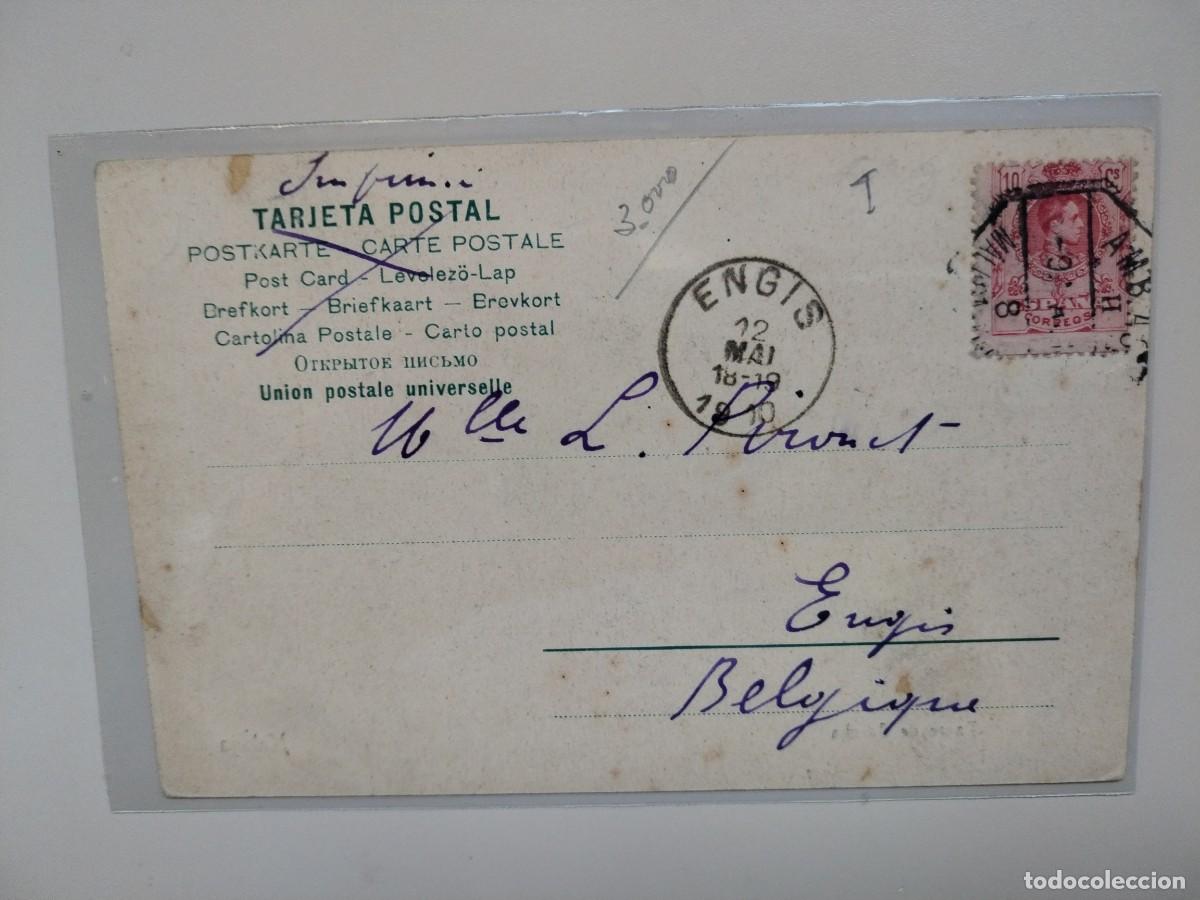 TARJETA POSTAL
POSTKARTE - CARTE POSTALE
Post Card - Levelezö-Lap
Brefkort - Briefkaart - Brevkort
Cartolina Postale - Carto postal
Открытое письмо
Union postale universelle
3.000
T
10 Cs
CORREOS
AMB.
8
ENGIS
12
MAI
18-19
1910
Mlle L. Pironet
Engis
Belgique
todocoleccion